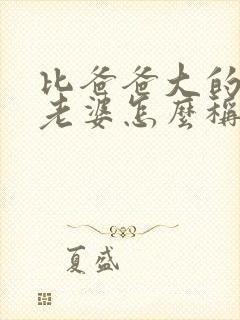 比爸爸大的
老婆怎麼稱
夏盛